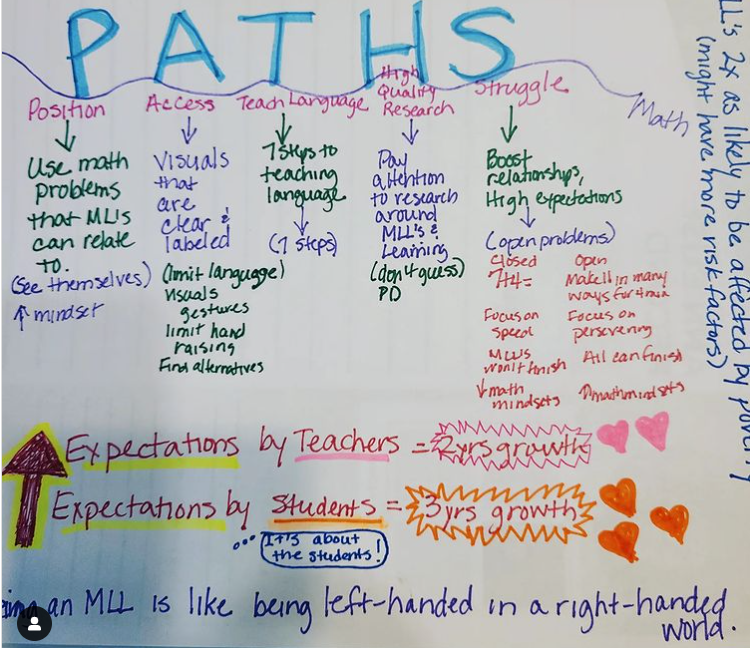 PATHS
Math
Position
Use math
problems
that ML's
can relate
to.
(see themselves)
↑ mindset
Access
Visuals
that
are
clear &
labeled
(limit language)
visuals
gestures
limit hand
raising
Find alternatives
Teach Language
7 steps to
teaching
language
(7 steps)
High
Quality
Research
Pay
attention
to research
around
MLL's &
Learning
(don't guess)
PD
Struggle
Boost
relationships,
High expectations
(open problems)
Closed
7+4=
Focus on
speed
MLLs
won't finish
↓ math
mindsets
Open
Make 11 in many
ways for 4 min
Focus on
persevering
All can finish
↑ math mindsets
LL's 2x as likely to be affected by
(might have more risk factors)
Expectations by Teachers = 2 yrs growth
Expectations by Students = 3 yrs growth
It's about
the students!
an MLL is like being left-handed in a right-handed
world.